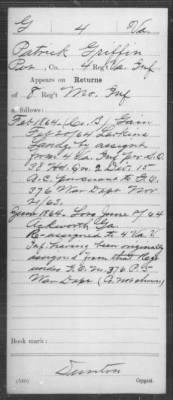 G 4 Va.
Patrick Griffin
Pvt., Co. , 4 Reg't Va. Inf.
Appears on Returns
of 8 Reg't Mo. Inf.
as follows:
Feb 1864 (Co. B) Gain
Feb 20/64 Larkins
Landy by assignt
from 4 Va. Inf. per S.O.
Hd. Qrs. 2 Div. 15
A.C. pursuant to G.O.
376 War Dept Nov
21/63.
June 1864. Loss June 2/64
Ackworth Ga.
Re-assigned to 4 Va. V.
Inf. having been originally
assigned from that Regt
under G.O. No. 376 P.S.
War Dept.
Book mark:
Dunton
(546) Copyist.